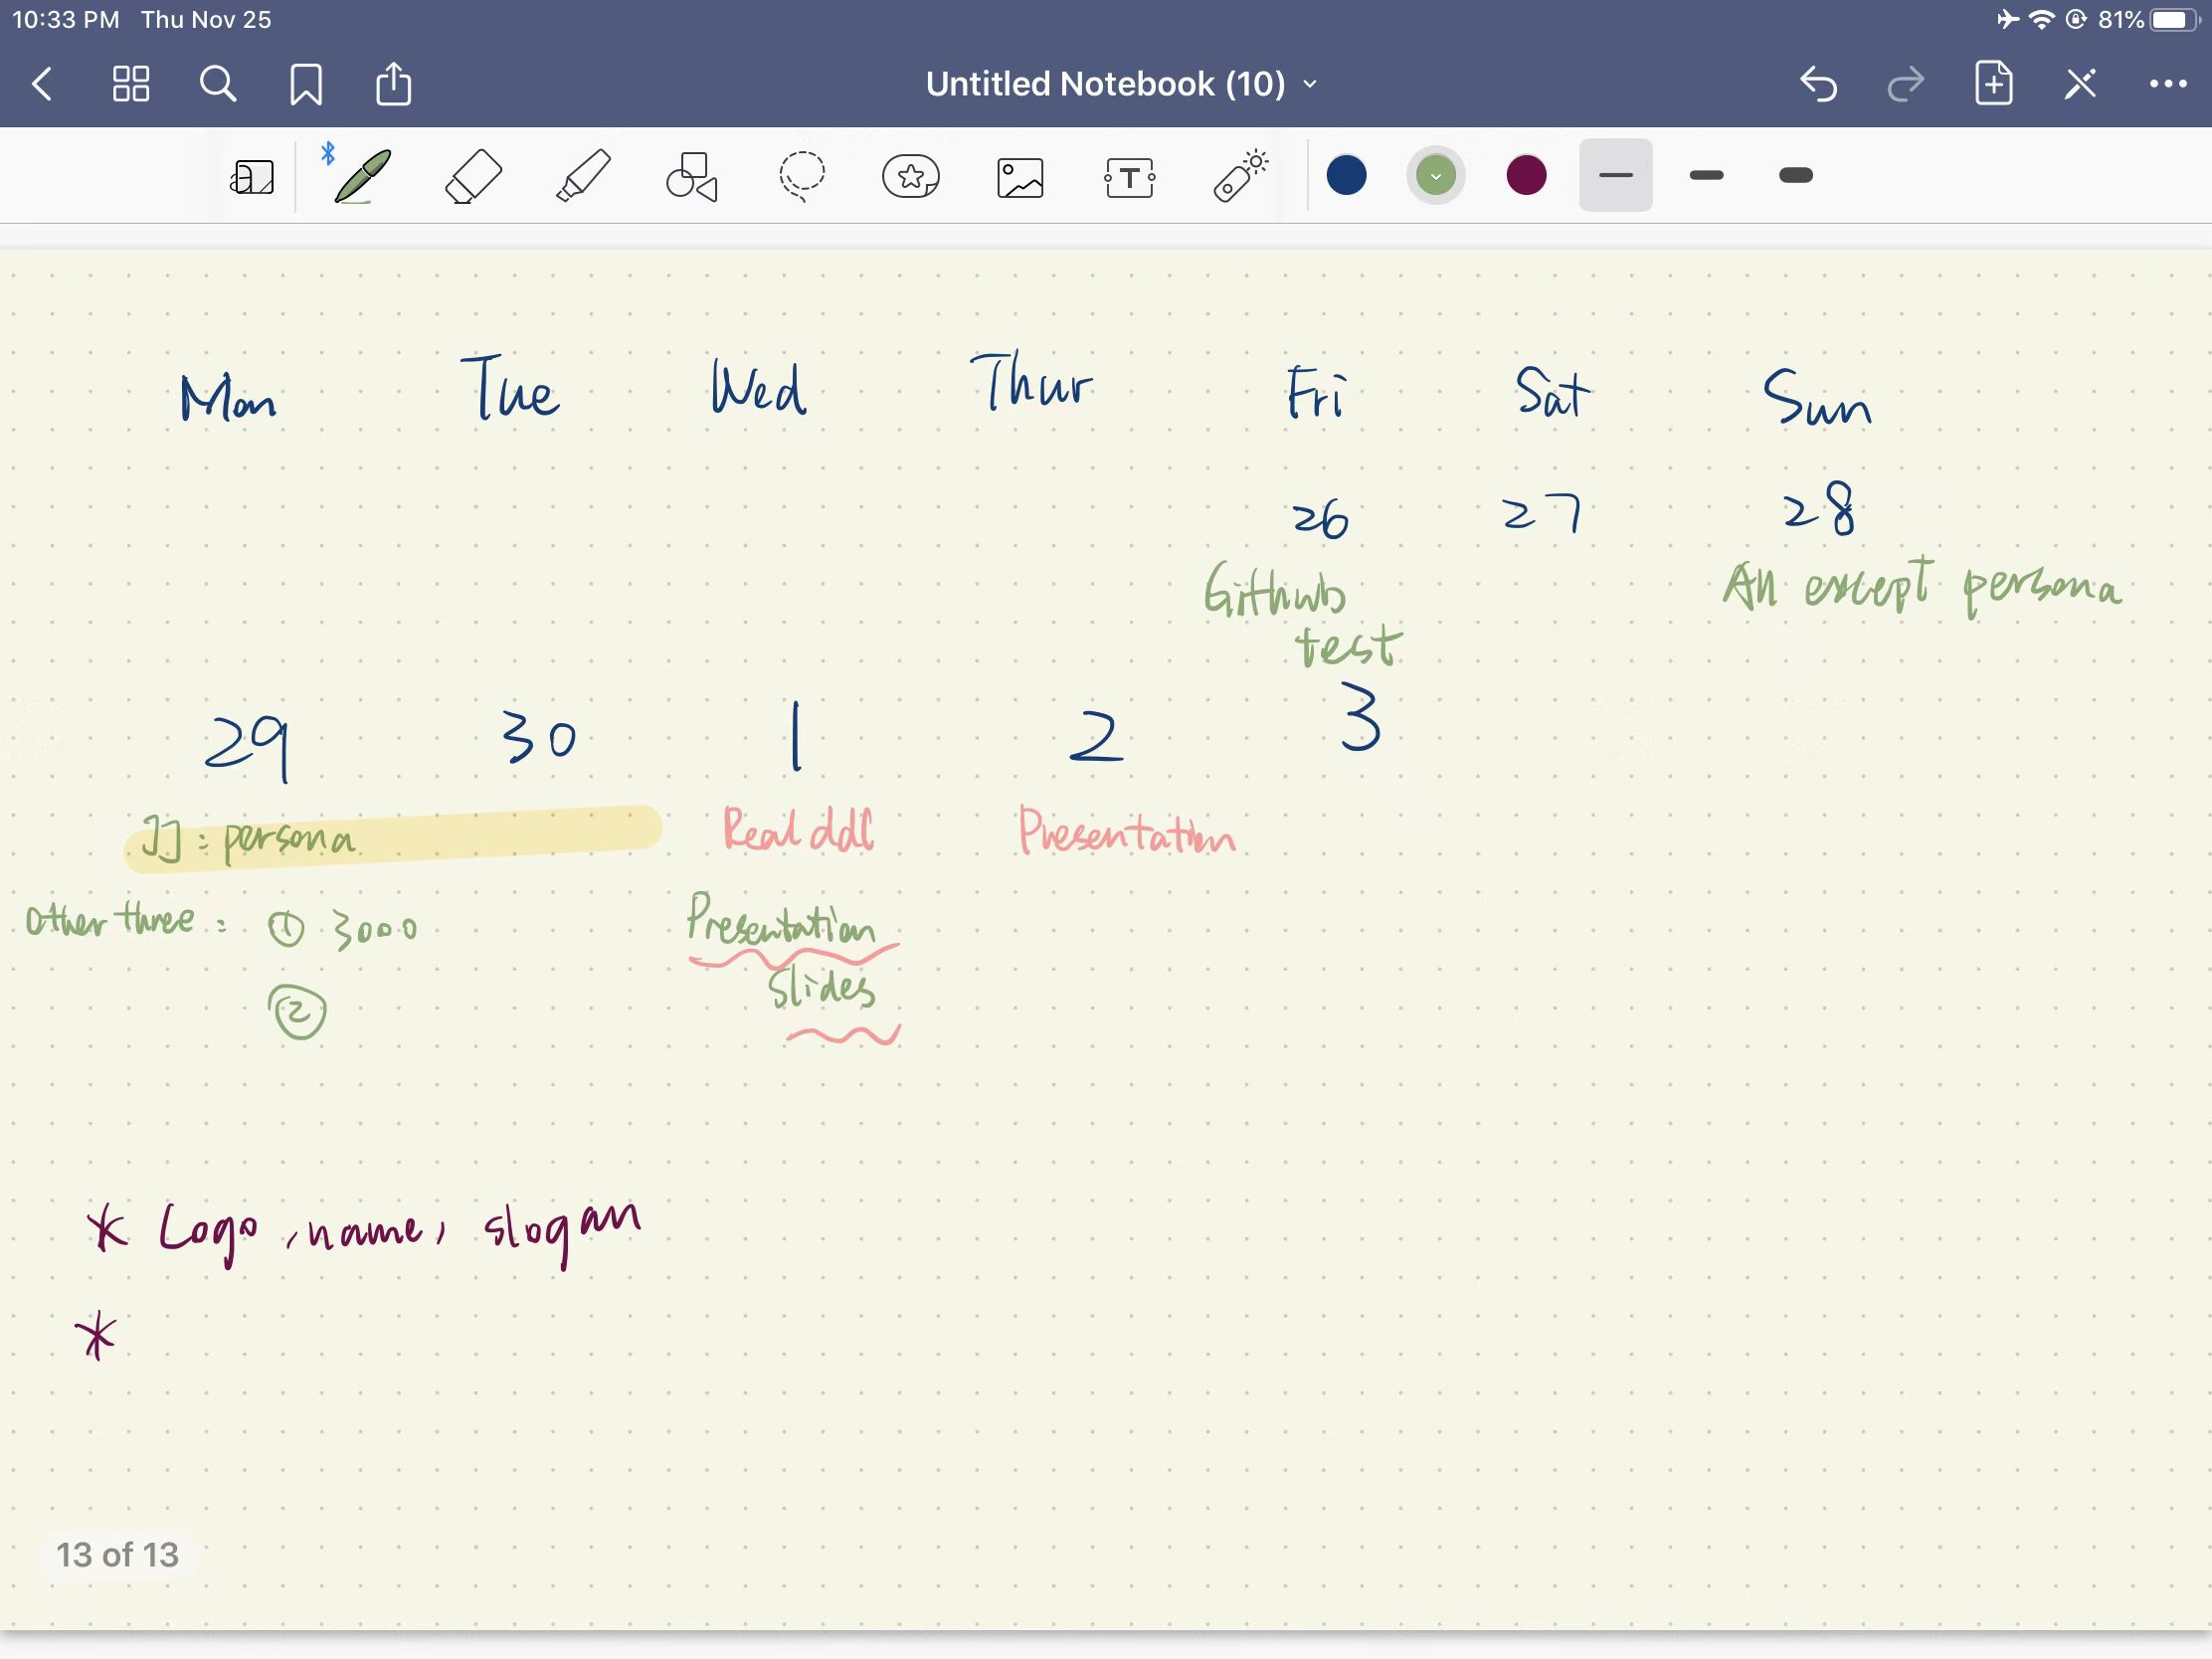 10:33 PM Thu Nov 25
81%
Untitled Notebook (10)
Mon Tue Wed Thur Fri Sat Sun
26 27 28
Github test
All except persona
29 30 1 2 3
JJ : persona
Real ddl
Presentation
Other three : ① 3000
②
Presentation
slides
* Logo, name, slogan
*
13 of 13